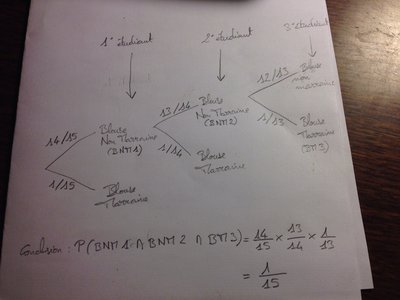 1° étudiant 2° étudiant 3° étudiant
14/15 13/14 12/13
Blouse
Non Marraine
(BNM1)
Blouse
Non Marraine
(BNM2)
Blouse
non
marraine
1/15 1/14 1/13
Blouse
Marraine
Blouse
Marraine
Blouse
Marraine
(BM3)
Conclusion : P(BNM1 ∩ BNM2 ∩ BM3) = 14/15 × 13/14 × 1/13
= 1/15